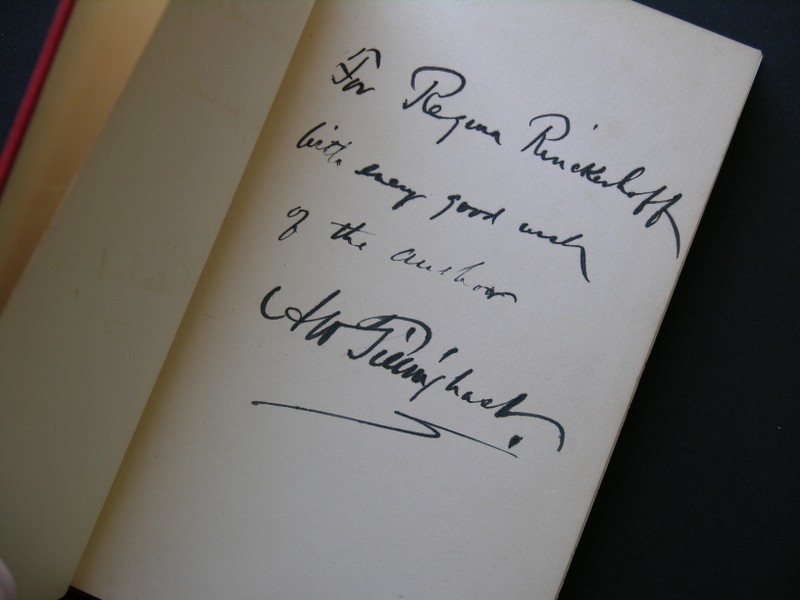 For Regina Rinckerhoff
with every good wish
of the author
AW Tillinghast.